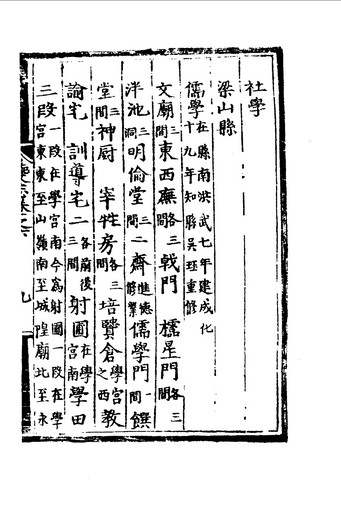 社學
梁山縣
儒學在縣南洪武七年建成化十九年知縣吳珏重修
文廟三間東西廡各三間戟門 櫺星門各三間
泮池三洞明倫堂三間二齋進德修業儒學門一間饌
堂三間神厨 宰牲房各三間培賢倉學宮之西教
諭宅 訓導宅二各前後三間射圃在學宮南學田
三段一段在學宮南今為射圃一段在學宮東東至山嶺南至城隍廟北至永
九